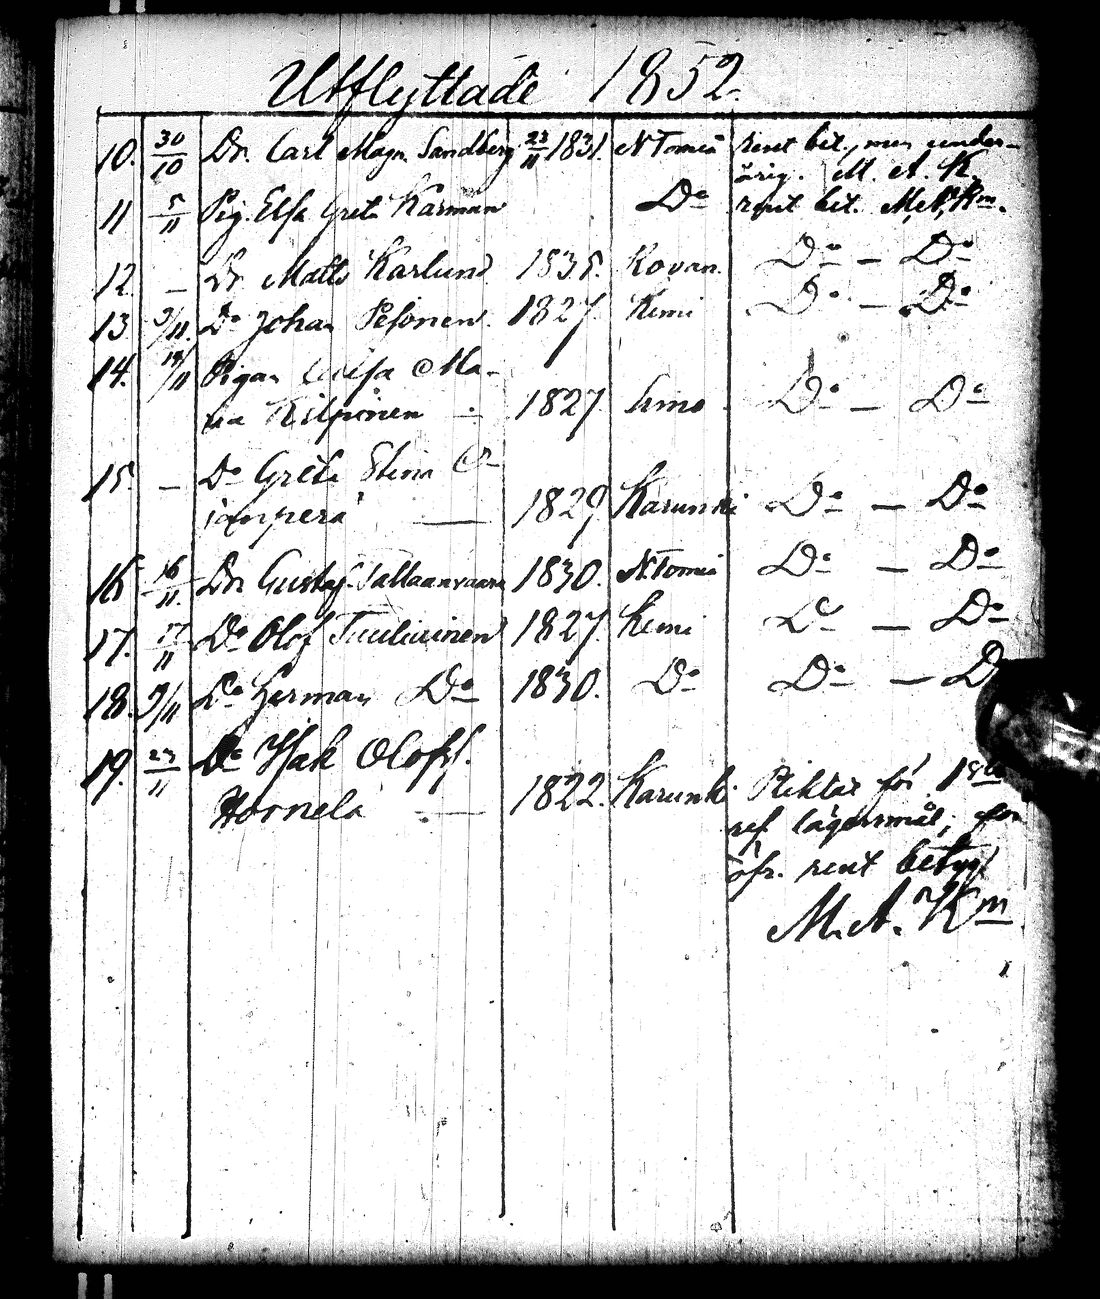 Utflyttade 1852.
10. 30/10 Dr. Carl Magn. Sandberg 23/11 1831. N Torneå rent bet., men under-
årig. M. A. K.
11 5/11 Pig. Elsa Greta Karman Do rent bet. M. A. Km.
12. — Dr. Matts Karlund 1835. Rovan. Do — Do
13. 9/11. Do Johan Pesonen. 1827. Kemi Do — Do
14. 14/11 Pigan Ulrsa Ma-
ria Kilponen - 1827 Simo Do — Do
15. — Do Greta Stina O-
janperä — 1829 Karunki Do — Do
16 16/11. Dr. Gustaf 1830. N Torneå Do — Do
17. 17/11 Do Olof 1827. Kemi Do — Do
18. 9/11 Do Herman Do 1830. Do Do — D
19. 23/11 Do Isak Olofss.
Hornela — 1822. Karunki Pliktat för 1sta
res. lägersmål; för
öfr. rent betyg
M. A. Km